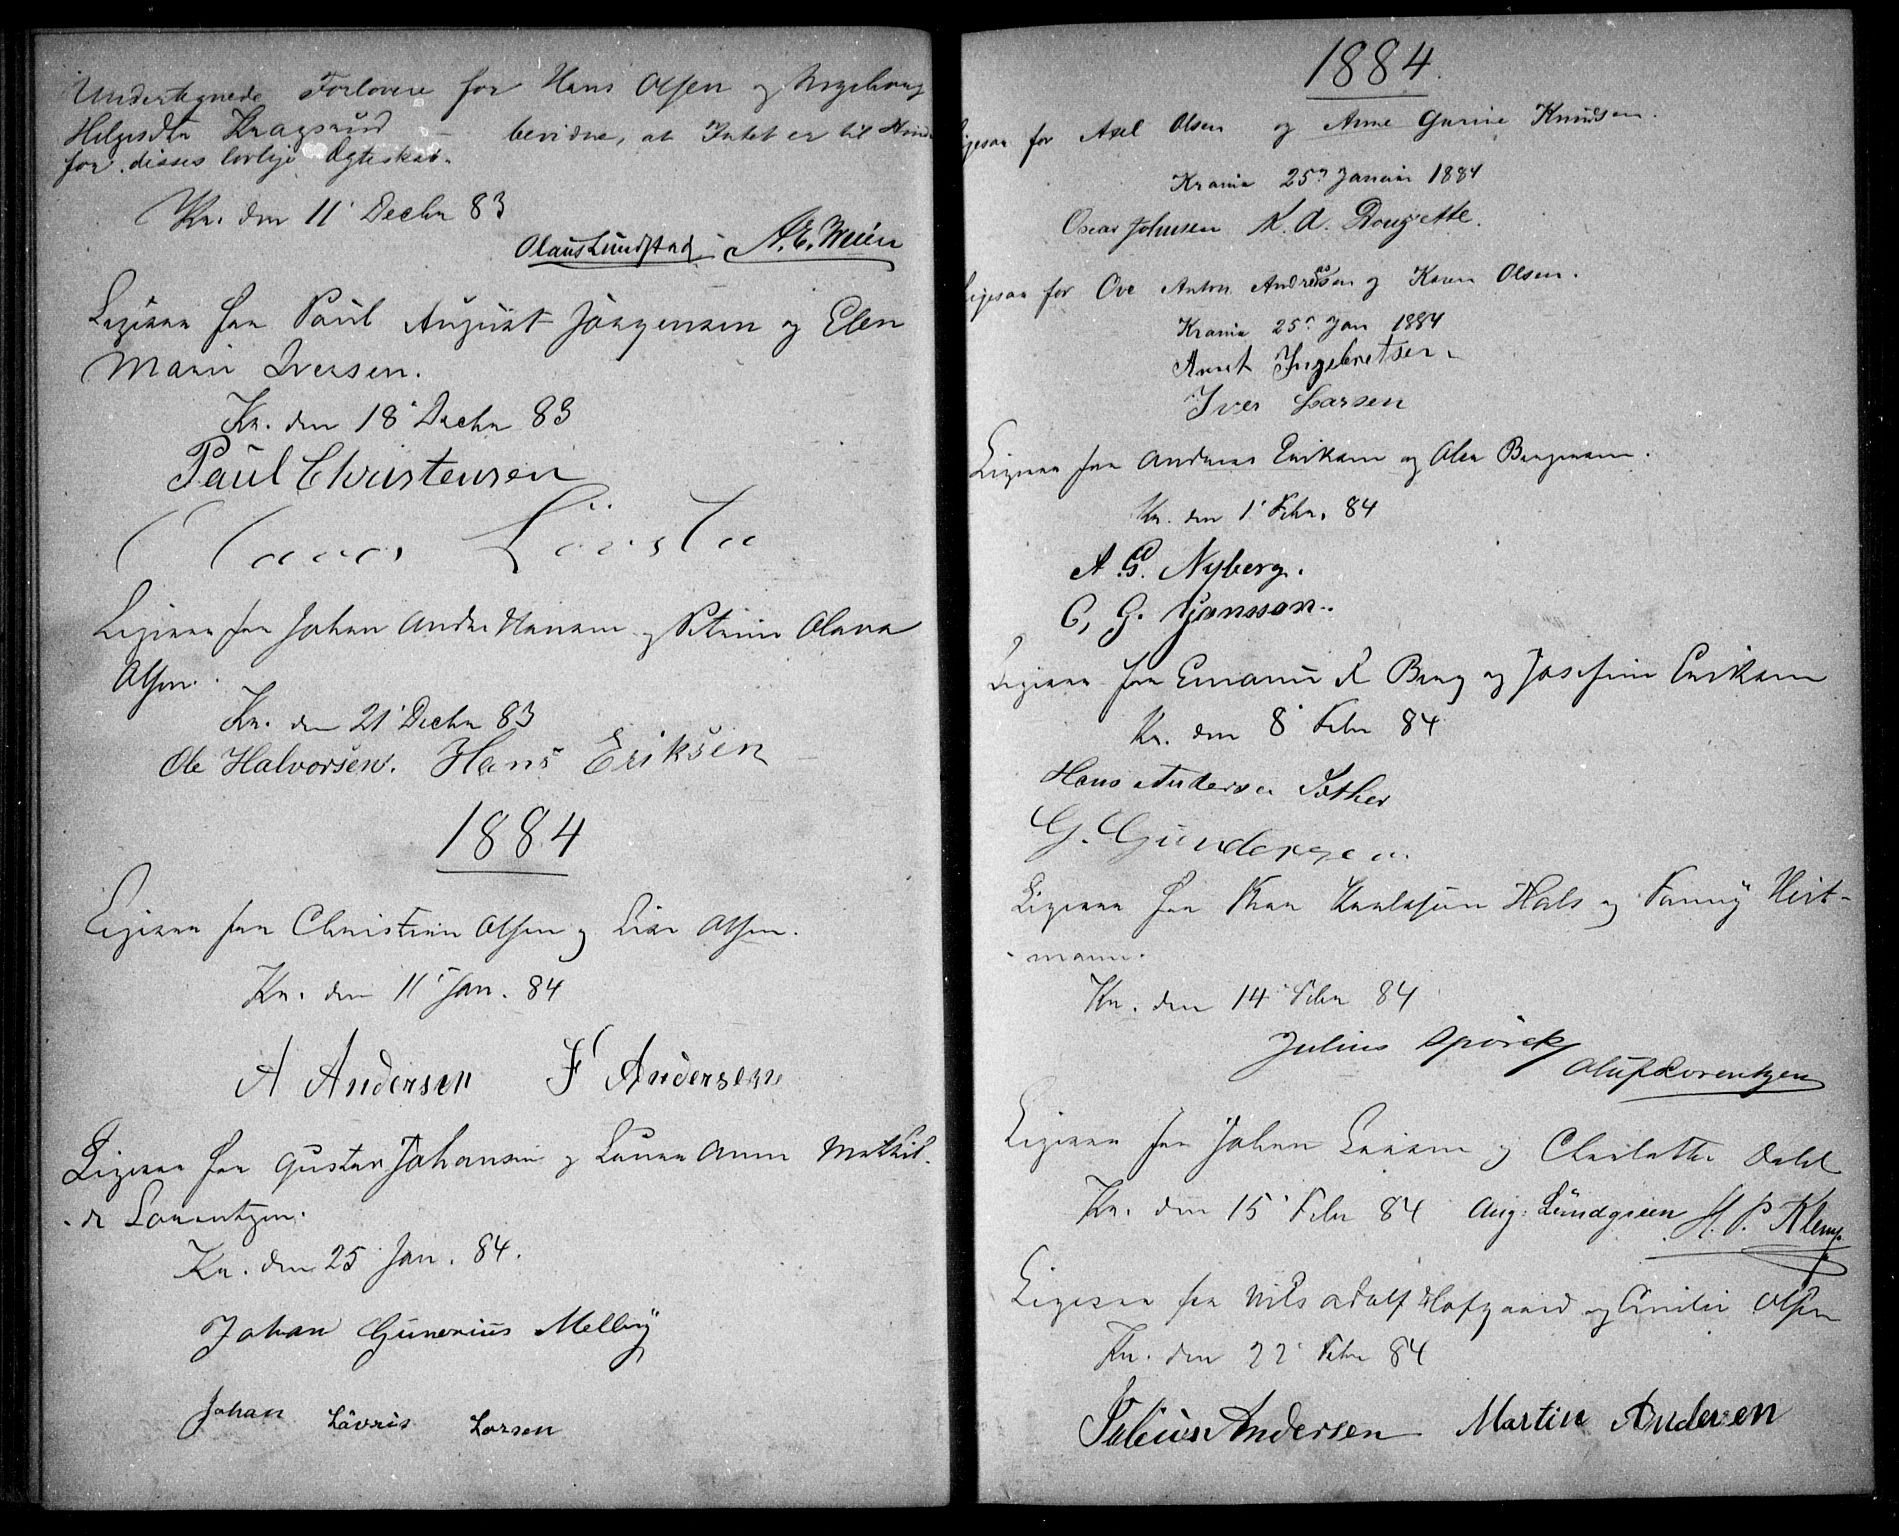 Undertegnede Forlovere for Hans Olsen og Ingeborg
Helgesdtr Kragsrud bevidne, at Intet er til Hind
for disses lovlige Ægteskab.
Kr. den 11' Decbr 83
Olaus Lundstad A. E. Weien
Ligesaa for Paul August Jørgensen og Elen
Marie Iversen.
Kr. den 18' Decbr 83
Paul Christensen
Ligesaa for Johan Andr. Hansen og Petrine Olava
Olsen.
Kr. den 21' Decbr 83
Ole Halvorsen. Hans Eriksen
1884
Ligesaa for Christian Olsen og Lise Olsen.
Kr. den 11' Jan. 84
A Andersen F Andersen
Ligesaa for Gustav Johansen og Laura Anna Mathil-
-de Lorentzen.
Kr. den 25 Jan. 84.
Johan Gunerius Melby
Johan Lavris Larsen
1884.
Ligesaa for Axel Olsen og Anne Gurine Knudsen.
Krania 25' Januar 1884
Oscar Johnsen K. A. Dougette.
Ligesaa for Ove Anton Andreasen og Karen Olsen.
Krania 25' Jan 1884
Arent Ingebretsen.
Iver Larsen
Ligesaa for Andreas Eriksen og Olea Bergersen.
Kr. den 1' Febr. 84
A. G. Nyberg.
C. G. Jansson.
Ligesaa for Emanuel Berg og Josefine Eriksen
Kr. den 8' Febr 84
Hans Andersen Sæther
G. Gundersen.
Ligesaa for Karelius Hals og Fanny Hirt-
-mann.
Kr. den 14' Febr 84
Julius Spørck Oluf Lorentzen
Ligesaa for Johan Larsen og Charlotte Dahl
Kr. den 15' Febr 84 Aug: Lundgreen H. P. Klemp
Ligesaa for Nils Adolf Hofgaard og Emilie Olsen
Kr. den 22' Febr 84
Julius Andersen Martin Andersen